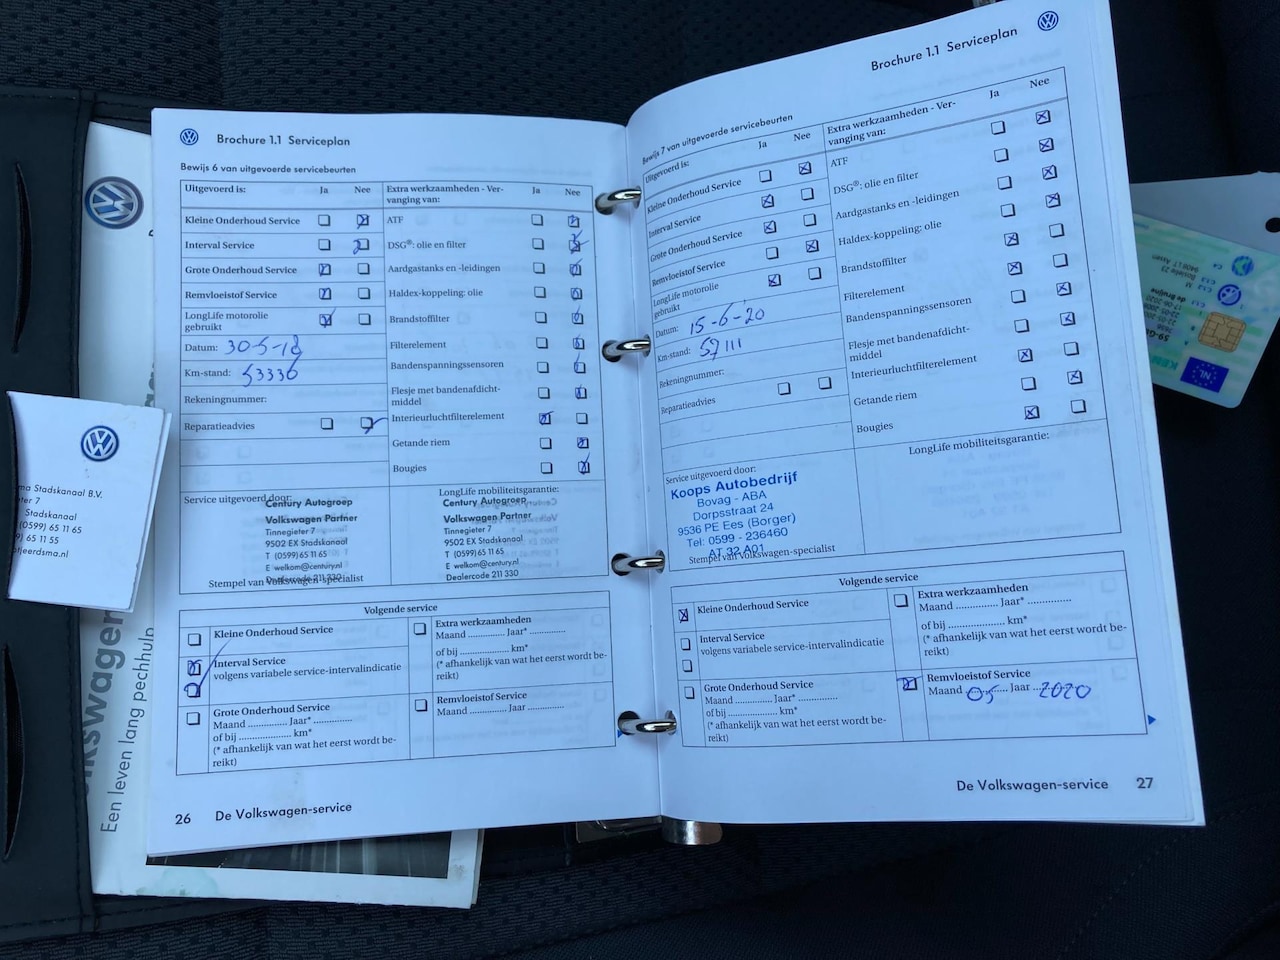 Brochure 1.1 Serviceplan
Bewijs 6 van uitgevoerde servicebeurten
Uitgevoerd is: Ja Nee
Kleine Onderhoud Service
Interval Service
Grote Onderhoud Service
Remvloeistof Service
LongLife motorolie
gebruikt
Datum: 30-5-18
Km-stand: 53336
Rekeningnummer:
Reparatieadvies
Extra werkzaamheden - Ver-
vanging van: Ja Nee
ATF
DSG®: olie en filter
Aardgastanks en -leidingen
Haldex-koppeling: olie
Brandstoffilter
Filterelement
Bandenspanningssensoren
Flesje met bandenafdicht-
middel
Interieurluchtfilterelement
Getande riem
Bougies
Service uitgevoerd door:
Century Autogroep
Volkswagen Partner
Tinnegieter 7
9502 EX Stadskanaal
T (0599) 65 11 65
E welkom@century.nl
Dealercode 211 330
Stempel van Volkswagen-specialist
LongLife mobiliteitsgarantie:
Century Autogroep
Volkswagen Partner
Tinnegieter 7
9502 EX Stadskanaal
T (0599) 65 11 65
E welkom@century.nl
Dealercode 211 330
Volgende service
Kleine Onderhoud Service
Interval Service
volgens variabele service-intervalindicatie
Grote Onderhoud Service
Maand .............. Jaar* ..............
of bij ...................... km*
(* afhankelijk van wat het eerst wordt be-
reikt)
Extra werkzaamheden
Maand .............. Jaar* ..............
of bij ...................... km*
(* afhankelijk van wat het eerst wordt be-
reikt)
Remvloeistof Service
Maand .............. Jaar ..............
26 De Volkswagen-service
Brochure 1.1 Serviceplan
Bewijs 7 van uitgevoerde servicebeurten
Uitgevoerd is: Ja Nee
Kleine Onderhoud Service
Interval Service
Grote Onderhoud Service
Remvloeistof Service
LongLife motorolie
gebruikt
Datum: 15-6-'20
Km-stand: 57111
Rekeningnummer:
Reparatieadvies
Extra werkzaamheden - Ver-
vanging van: Ja Nee
ATF
DSG®: olie en filter
Aardgastanks en -leidingen
Haldex-koppeling: olie
Brandstoffilter
Filterelement
Bandenspanningssensoren
Flesje met bandenafdicht-
middel
Interieurluchtfilterelement
Getande riem
Bougies
Service uitgevoerd door:
Koops Autobedrijf
Bovag - ABA
Dorpsstraat 24
9536 PE Ees (Borger)
Tel: 0599 - 236460
AT 32 A01
Stempel van Volkswagen-specialist
LongLife mobiliteitsgarantie:
Volgende service
Kleine Onderhoud Service
Interval Service
volgens variabele service-intervalindicatie
Grote Onderhoud Service
Maand .............. Jaar* ..............
of bij ...................... km*
(* afhankelijk van wat het eerst wordt be-
reikt)
Extra werkzaamheden
Maand .............. Jaar* ..............
of bij ...................... km*
(* afhankelijk van wat het eerst wordt be-
reikt)
Remvloeistof Service
Maand 05 Jaar 2020
De Volkswagen-service 27
Stadskanaal B.V.
7
Stadskanaal
(0599) 65 11 65
65 11 55
Een leven lang pechhulp
NL